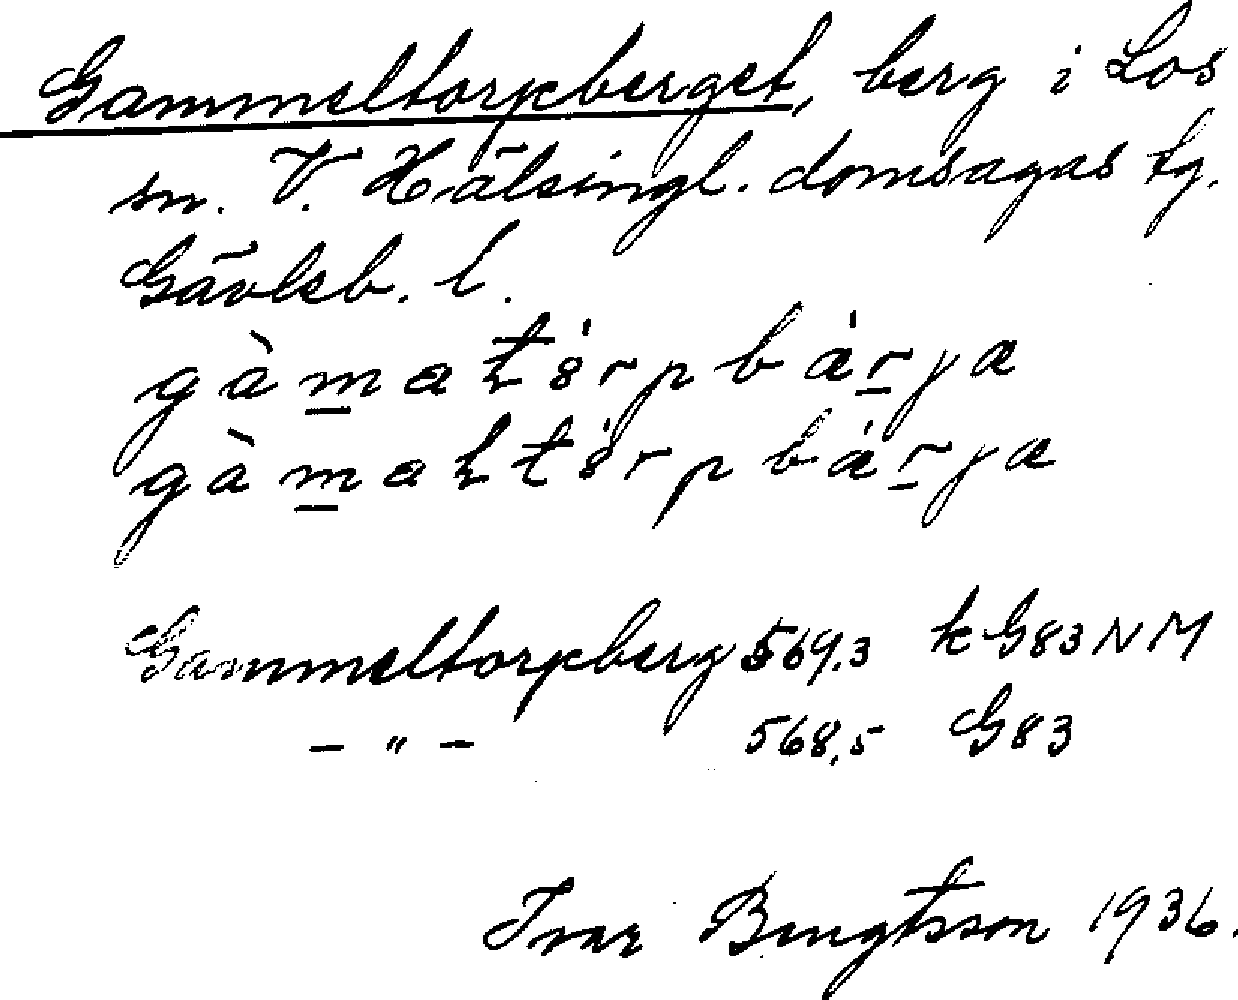 Gammeltorpberget, berg i Los
sn. V. Hälsingl. domsagas tg.
Gävleb. l.
gàmatörpbärja
gàmaltörpbärja
Gammeltorpberg 569,3 k G83 NM
– " – 568,5 G83
Ivar Bengtsson 1936.